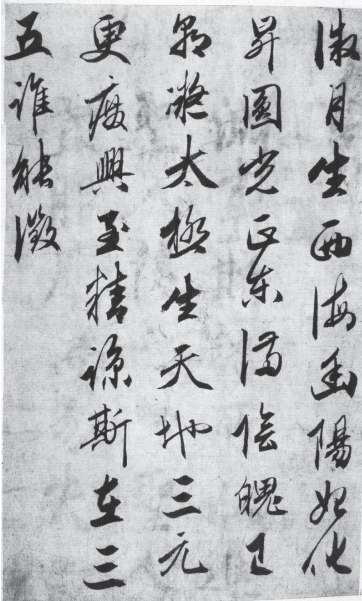 微月生西海幽陽始化
昇圓光正東滿陰魄已
朝凝太極生天地三元
更廢興至精諒斯在三
五誰能徵